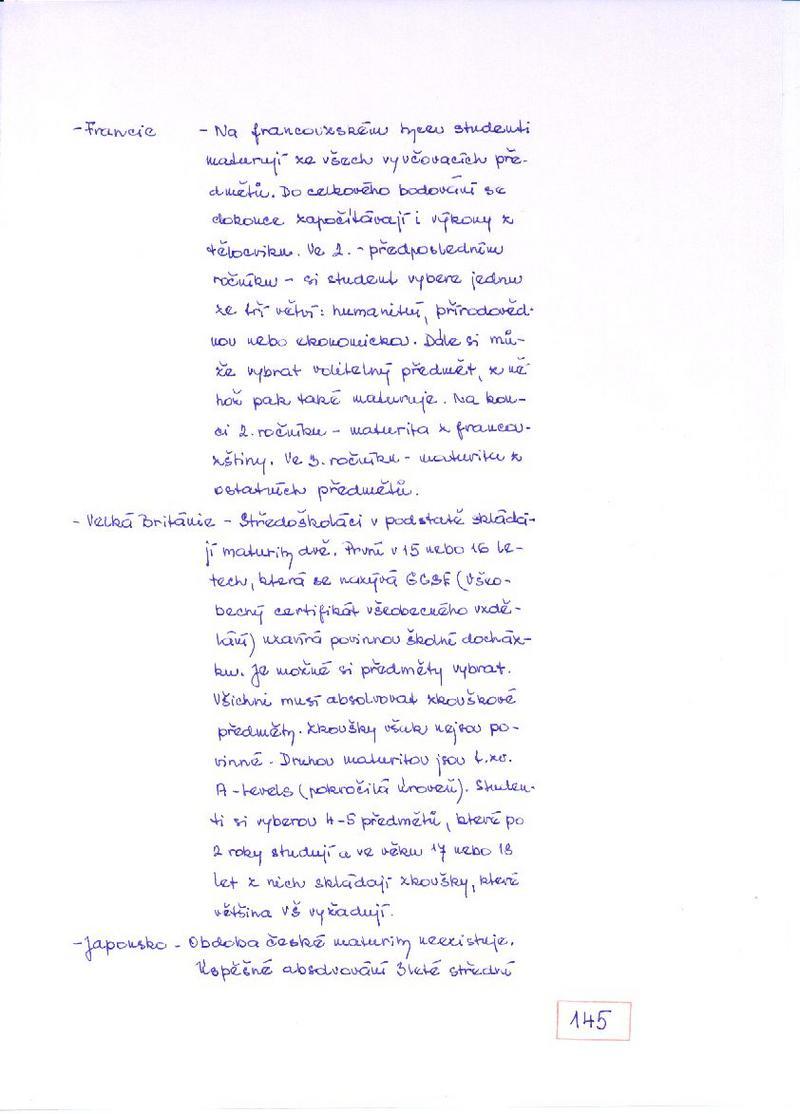 - Francie - Na francouzském lyceu studenti
maturují ze všech vyučovacích pře-
dmětů. Do celkového bodování se
dokonce započítávají i výkony z
tělocviku. Ve 2. - předposledním
ročníku - si student vybere jednu
ze tří větví: humanitní, přírodověd-
nou nebo ekonomickou. Dále si mů-
že vybrat volitelný předmět, z ně
hož pak také maturuje. Na kon-
ci 2. ročníku - maturita z francou-
zštiny. Ve 3. ročníku - maturita z
ostatních předmětů.
- Velká Británie - Středoškoláci v podstatě skláda-
jí maturity dvě. První v 15 nebo 16 le-
tech, která se nazývá GCSE (Všeo-
becný certifikát všeobecného vzdě-
lání) uzavírá povinnou školní docház-
ku. Je možné si předměty vybrat.
Všichni musí absolvovat zkouškové
předměty. Zkoušky však nejsou po-
vinné. Druhou maturitou jsou t.zv.
A-levels (pokročilá úroveň). Studen-
ti si vyberou 4-5 předmětů, které po
2 roky studují a ve věku 17 nebo 18
let z nich skládají zkoušky, které
většina VŠ vyžadují.
- Japonsko - Obdoba české maturity neexistuje.
Úspěšné absolvování 3leté střední
145